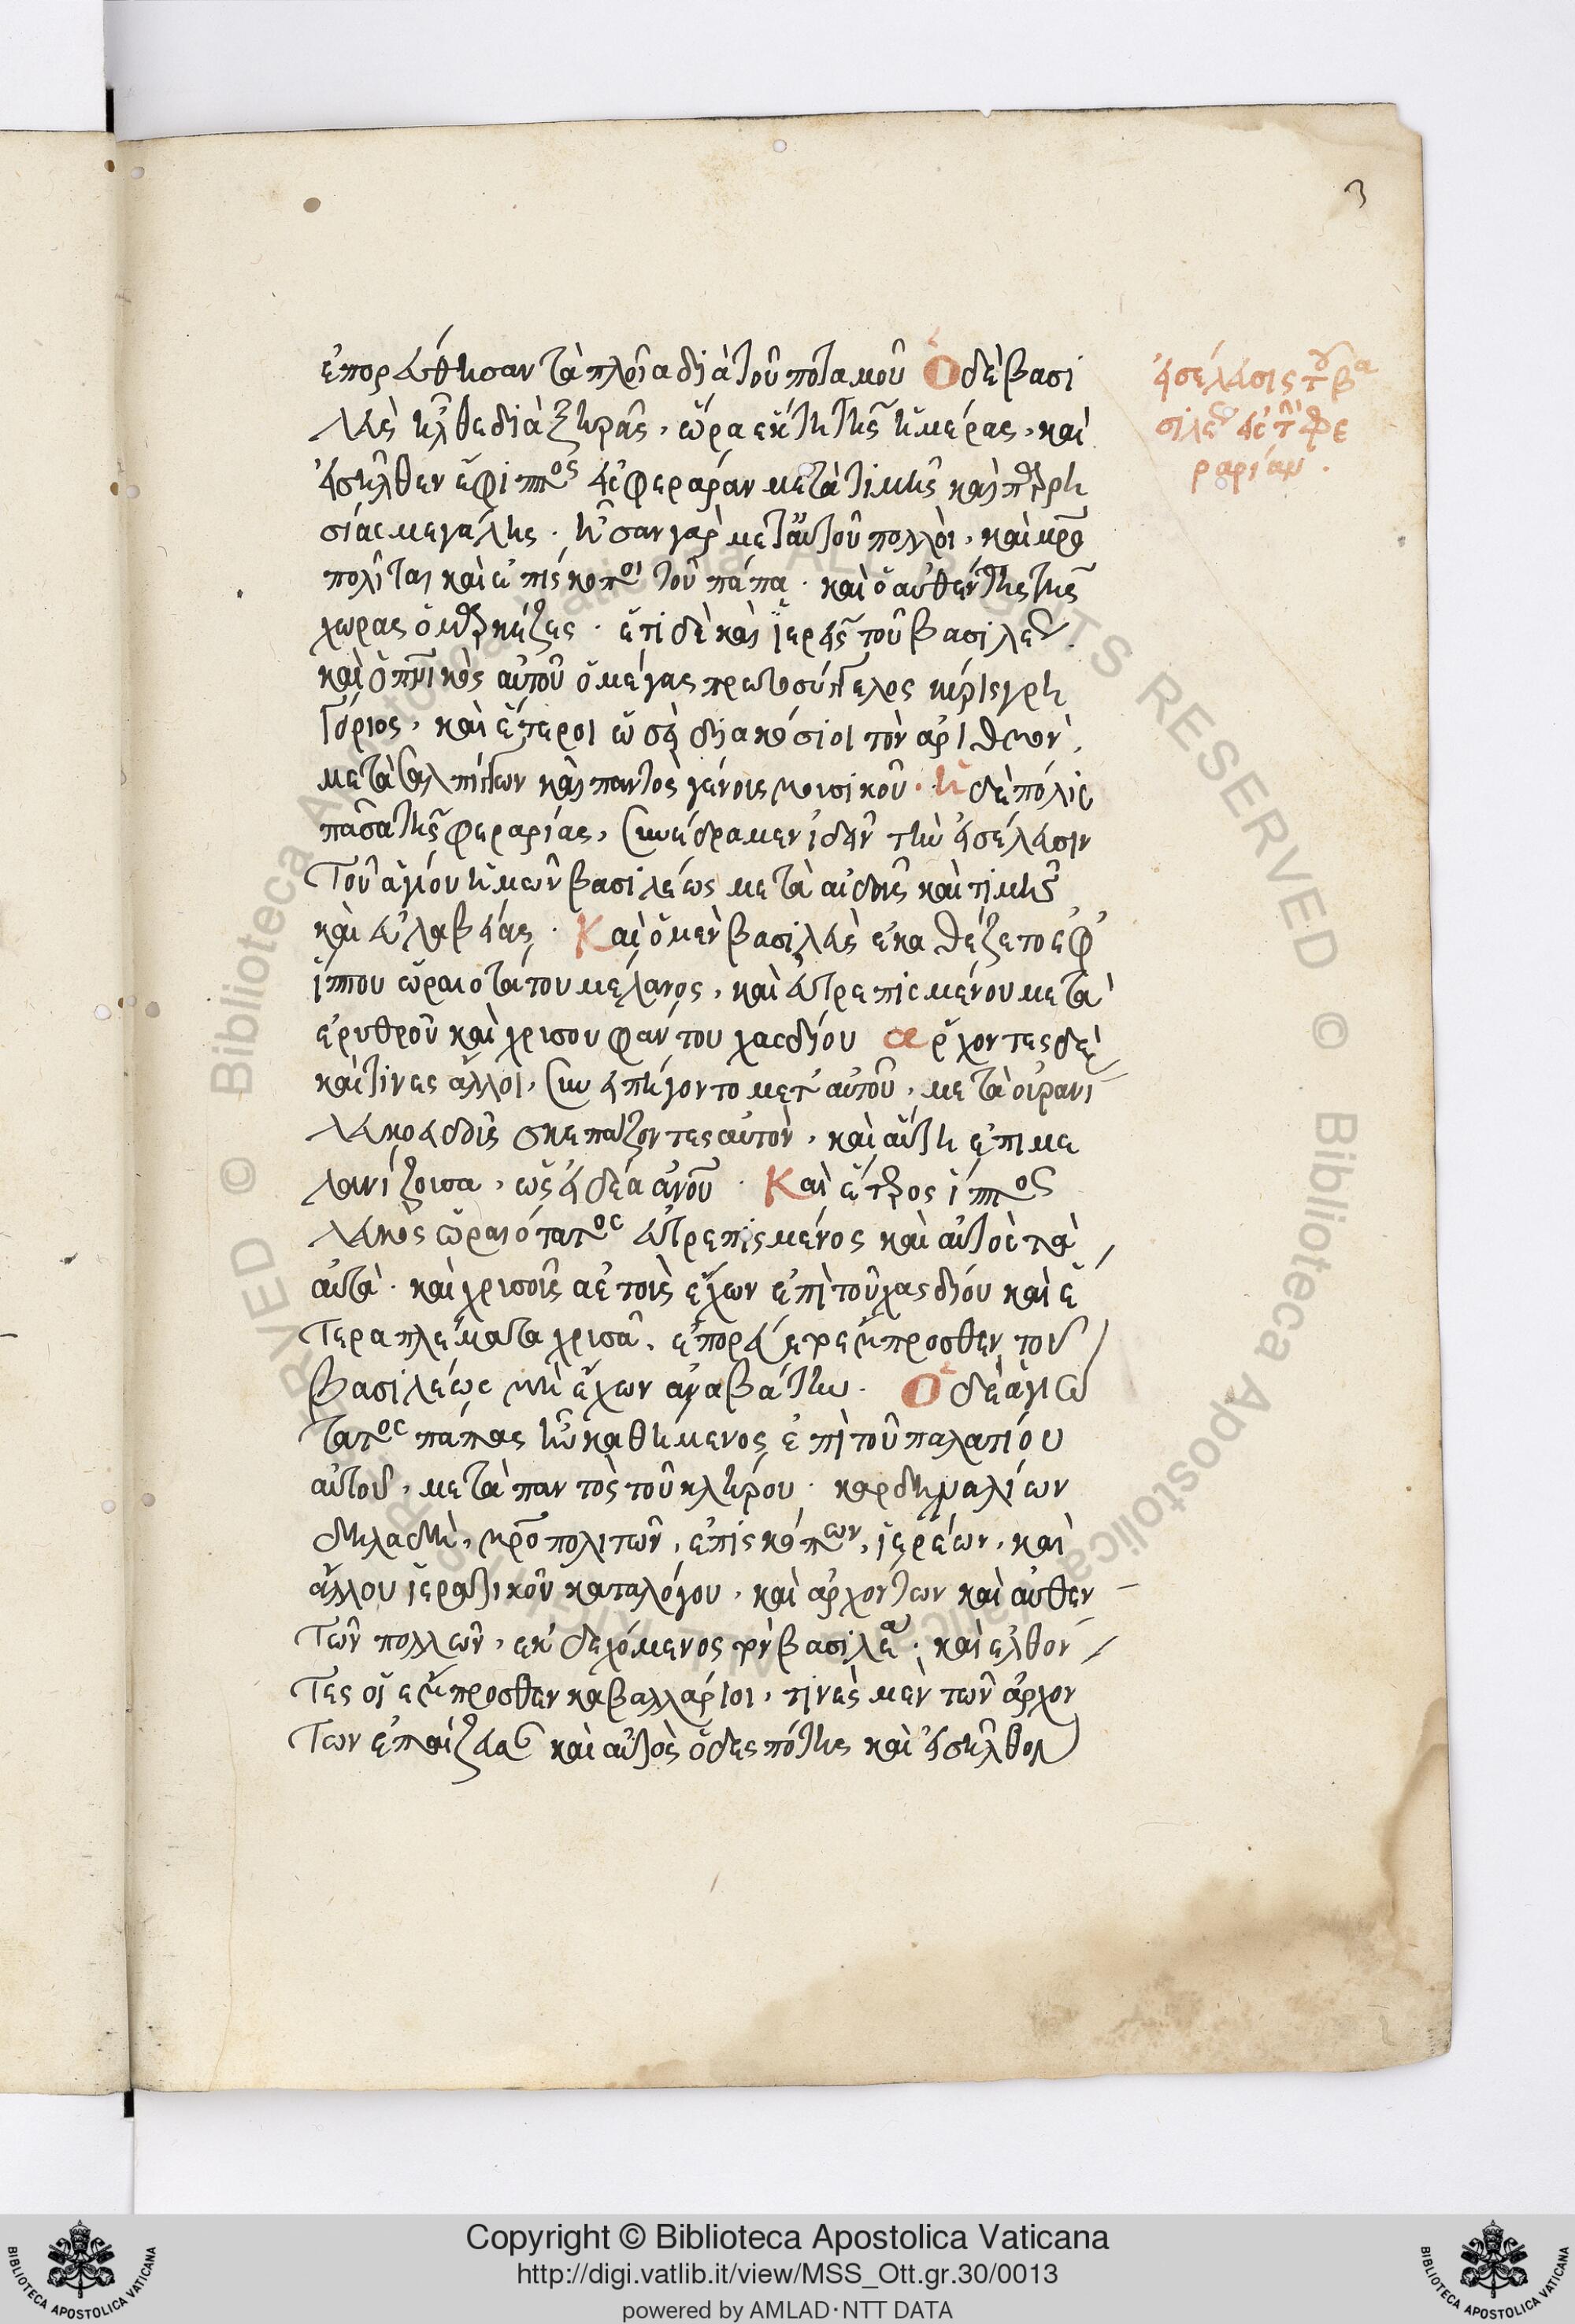 3
ἐπορεύθησαν τὰ πλοῖα διὰ τοῦ ποταμοῦ Ὁ δὲ βασι
λεὺς ἦλθε διὰ ξηρᾶς, ὥρα ἕκτη τῆς ἡμέρας, καὶ
εἰσῆλθεν ἔφιππος εἰς φεραρίαν μετὰ τιμῆς καὶ παρρη
σίας μεγάλης. ἦσαν γὰρ μετ αὐτοῦ πολλοὶ, καὶ μρο
πολῖται καὶ ἐπίσκοποι τοῦ πάπα. καὶ ὁ αὐθέντης τῆς
χώρας ὁ μαρκέζες. ἔτι δὲ καὶ ἱερεῖς τοῦ βασιλέως
καὶ ὁ πνικὸς αὐτοῦ ὁ μέγας πρωτοσύγγελος κύρις γρη
γόριος, καὶ ἕτεροι ὡσεὶ διακόσιοι τὸν ἀριθμὸν,
μετὰ σαλπίγγων καὶ παντὸς γένους μουσικοῦ. ἡ δὲ πόλις
πᾶσα τῆς φεραρίας, συνέδραμεν ἰδεῖν τὴν εἰσέλευσιν
τοῦ ἁγίου ἡμῶν βασιλέως μετὰ αἰδοῦς καὶ τιμῆς
καὶ εὐλαβείας. Καὶ ὁ μὲν βασιλεὺς ἐκαθέζετο ἐφ
ἵππου ὡραιοτάτου μέλανος, καὶ εὐτρεπισμένου μετὰ
ἐρυθροῦ καὶ χρισουφάντου χασδίου αρχοντες δὲ
καὶ τινες ἄλλοι, συνεπήγοντο μετ αὐτοῦ, μετὰ οὐρανί
σκεπάζοντες αὐτὸν, καὶ αὕτη ἐπιμε
λανίζουσα, ὡς εἰδέα ἀνου. Καὶ ἕτερος ἵππος
λευκὸς ὡραιότατος εὐτρεπισμένος καὶ αὐτὸς τὰ
αὐτὰ. καὶ χρισοῦς αετοὺς ἔχων ἐπὶ τοῦ χασδίου καὶ ἕ
τερα πλέματα χρισᾶ, ἐπορεύετο ἔμπροσθεν τοῦ
βασιλέως μὴ ἔχων ἀναβάτην. Ὁ δὲ ἁγιώ
τατος πάπας ἦν καθήμενος ἐπὶ τοῦ παλατίου
αὐτοῦ, μετὰ παντὸς τοῦ κλήρου. καρδιναλίων
δηλαδὴ, μροπολιτῶν, ἐπισκόπων, ἱερέων, καὶ
ἄλλου ἱερατικοῦ καταλόγου, καὶ ἀρχόντων καὶ αὐθεν
τῶν πολλῶν, ἐκδεχόμενος τὸν βασιλέα. καὶ ἐλθόν
τες οἱ ἔμπροσθεν καβαλλάριοι, τινὲς μὲν τῶν ἀρχόν
των ἐπαίζευσαν καὶ αὐτὸς ὁ δεσπότης καὶ εἰσῆλθον
εἰσέλευσις τοῦ βα
σιλέως εἰς τὴν φε
ραρίαν.
Copyright © Biblioteca Apostolica Vaticana
http://digi.vatlib.it/view/MSS_Ott.gr.30/0013
powered by AMLAD·NTT DATA
BIBLIOTECA APOSTOLICA VATICANA
BIBLIOTECA APOSTOLICA VATICANA